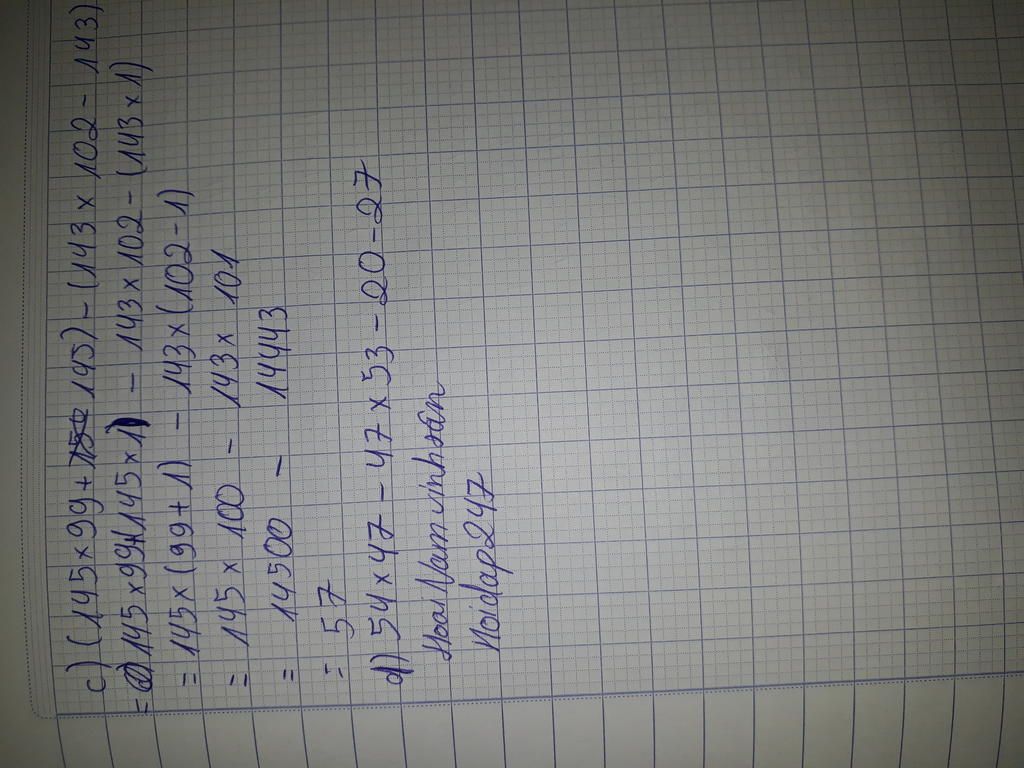 c) (145 × 99 + 145) - (143 × 102 - 143)
= 145 × 99 + (145 × 1) - 143 × 102 - (143 × 1)
= 145 × (99 + 1) - 143 × (102 - 1)
= 145 × 100 - 143 × 101
= 14500 - 14443
= 57
d) 54 × 47 - 47 × 53 - 20 - 27
HoaiNamvinhsân
Hoidap247